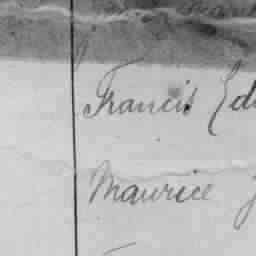 Francis Ed
Maurice J